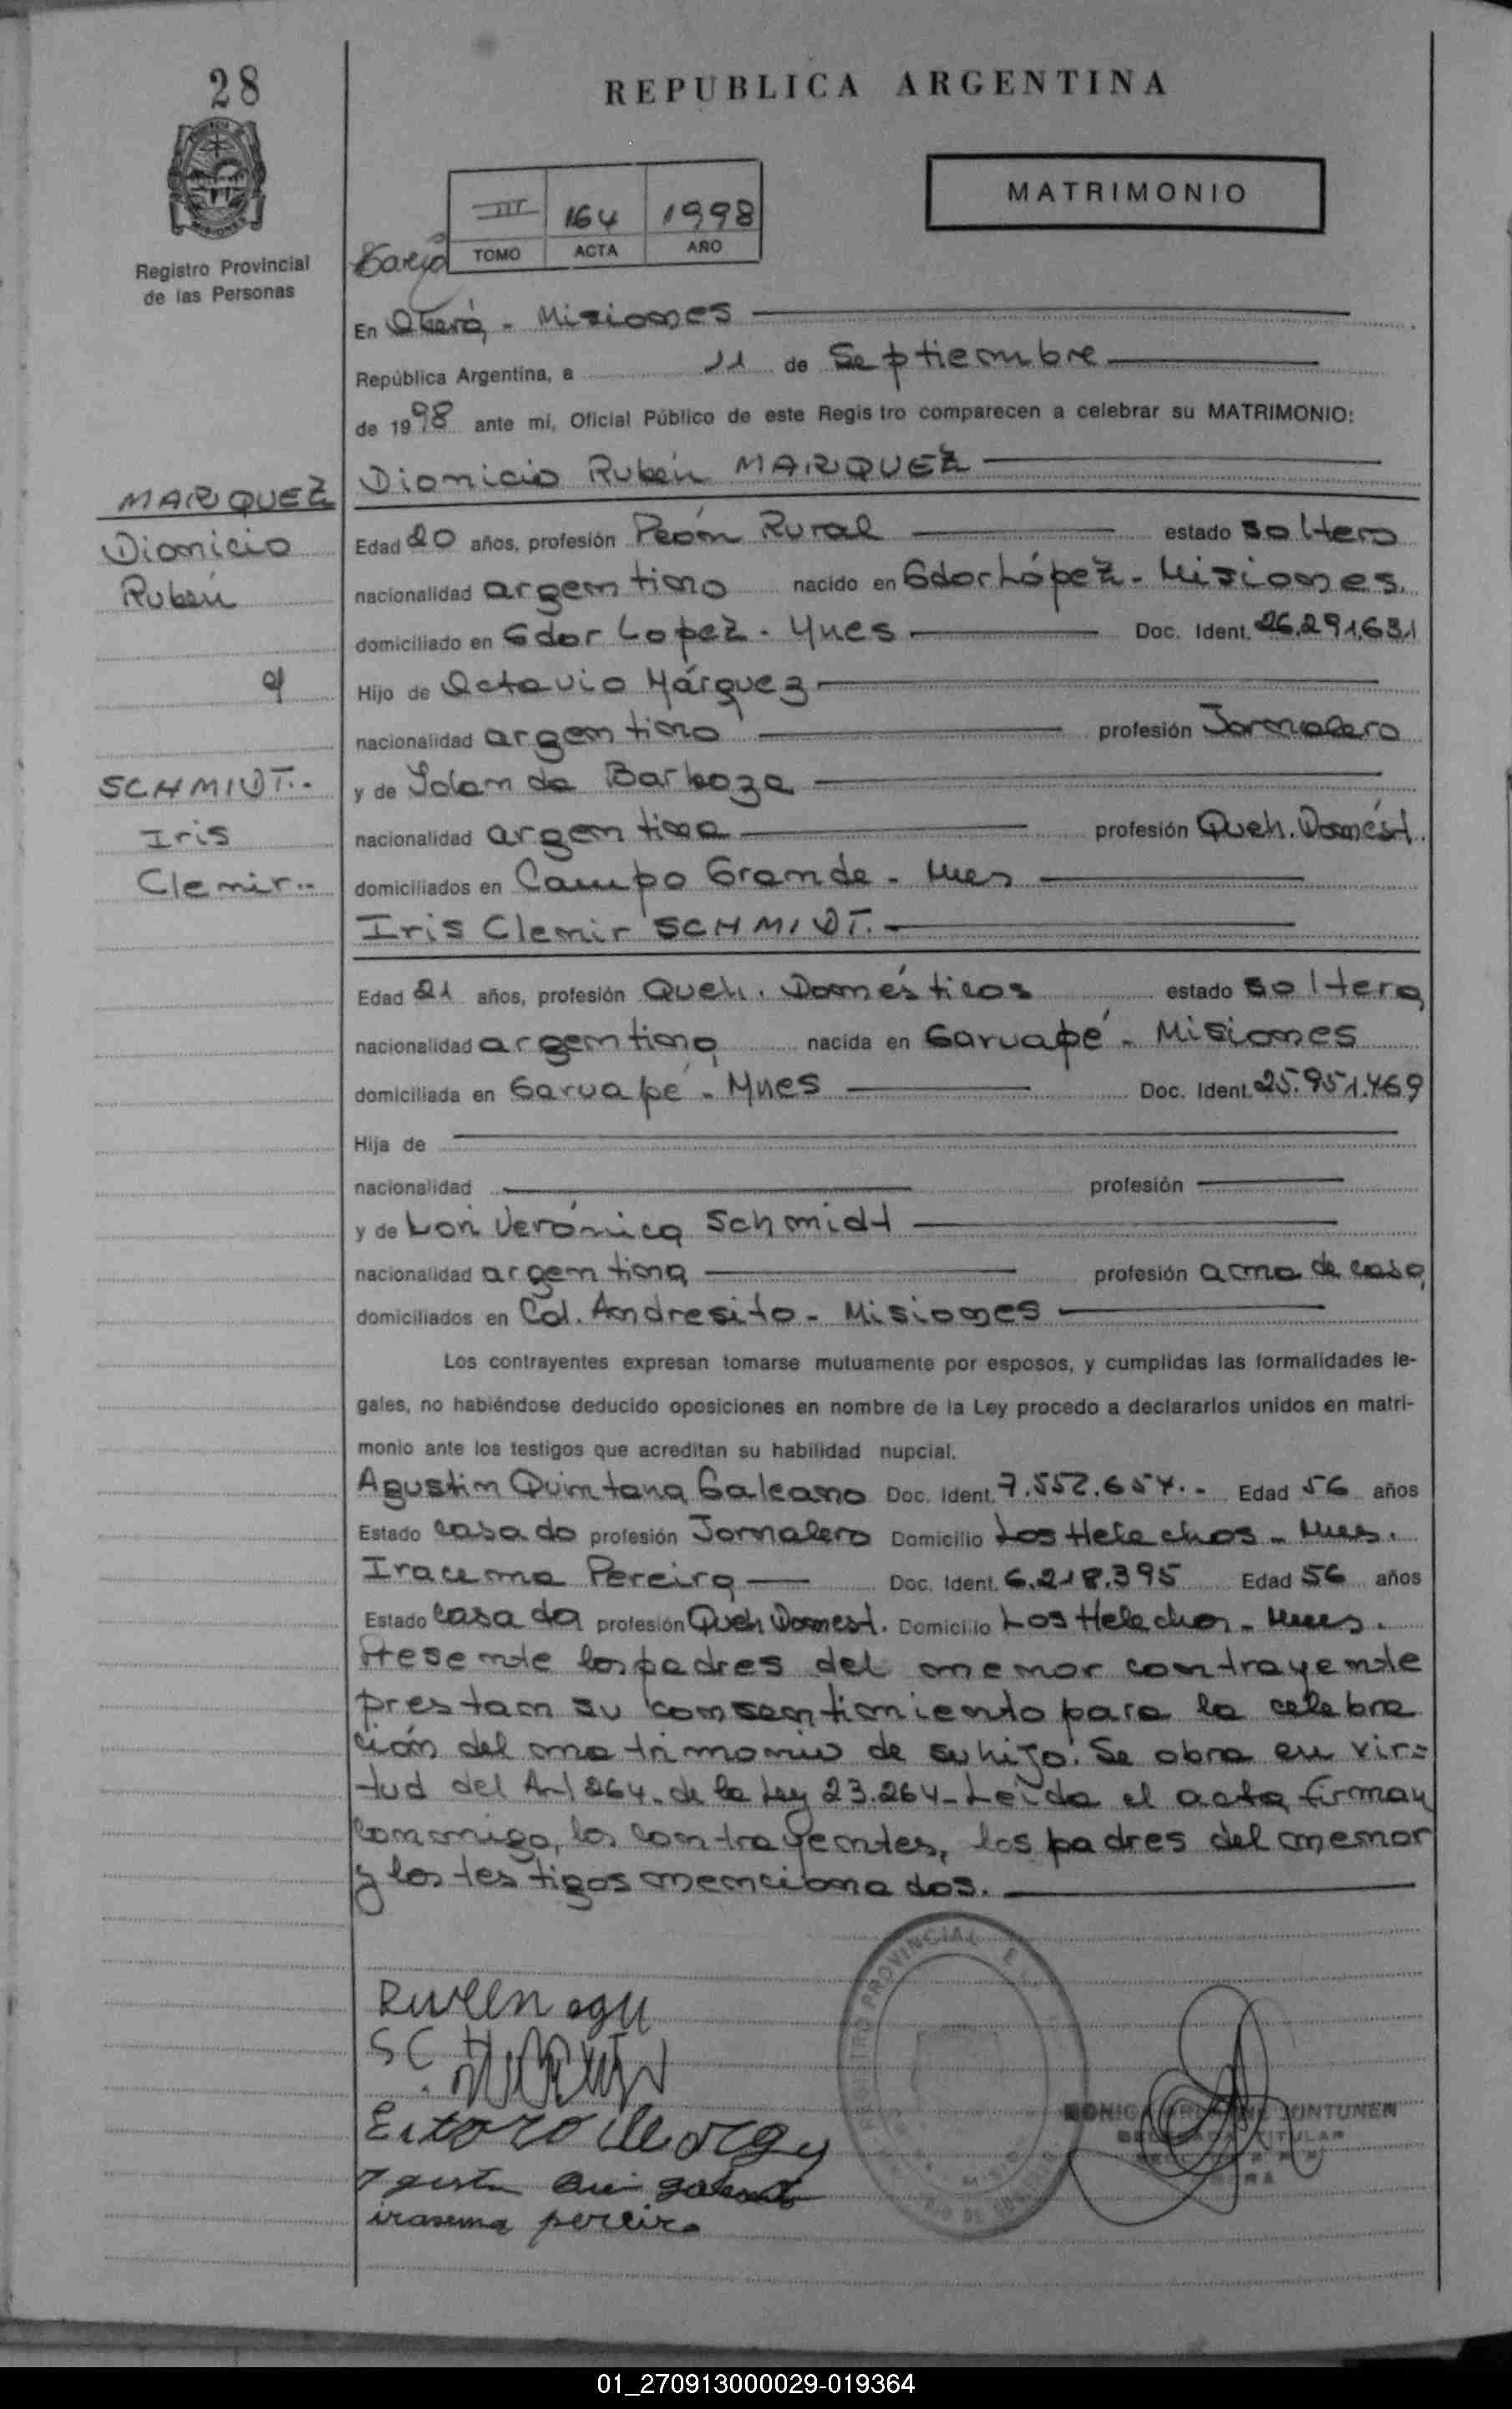 28
REPUBLICA ARGENTINA
MATRIMONIO
III 164 1998
TOMO ACTA AÑO
Registro Provincial
de las Personas
En Oberá - Misiones
República Argentina, a 11 de Septiembre
de 1998 ante mí, Oficial Público de este Registro comparecen a celebrar su MATRIMONIO:
Dionicio Rubén MARQUEZ
MARQUEZ
Dionicio
Rubén
Edad 20 años, profesión Peón Rural estado soltero
nacionalidad argentino nacido en Gdor López - Misiones.
domiciliado en Gdor Lopez - Mnes Doc. Ident. 26.291.631
Hijo de Octavio Márquez
nacionalidad argentino profesión Jornalero
y de Yolanda Barboza
nacionalidad argentina profesión Queh. Domést.
domiciliados en Campo Grande - Mnes
Iris Clemir SCHMIDT.-
SCHMIDT.-
Iris
Clemir..
Edad 21 años, profesión Queh. Domésticos estado soltera
nacionalidad argentina nacida en Garuapé - Misiones
domiciliada en Garuapé - Mnes Doc. Ident. 25.951.469
Hija de
nacionalidad profesión
y de Lori Verónica Schmidt
nacionalidad argentina profesión ama de casa
domiciliados en Col. Andresito - Misiones
Los contrayentes expresan tomarse mutuamente por esposos, y cumplidas las formalidades le-
gales, no habiéndose deducido oposiciones en nombre de la Ley procedo a declararlos unidos en matri-
monio ante los testigos que acreditan su habilidad nupcial.
Agustin Quintana Galeano Doc. Ident. 7.552.654.- Edad 56 años
Estado casado profesión Jornalero Domicilio Los Helechos - Mnes.
Iracema Pereira Doc. Ident. 6.218.395 Edad 56 años
Estado casada profesión Queh Domest. Domicilio Los Helechos - Mnes.
Presente los padres del menor contrayente
prestan su consentimiento para la celebra
ción del matrimonio de su hijo. Se obra en vir=
tud del Art 264. de la Ley 23.264 - Leída el acta, firman
conmigo, los contrayentes, los padres del menor
y los testigos mencionados.
irasema pereira
01_270913000029-019364